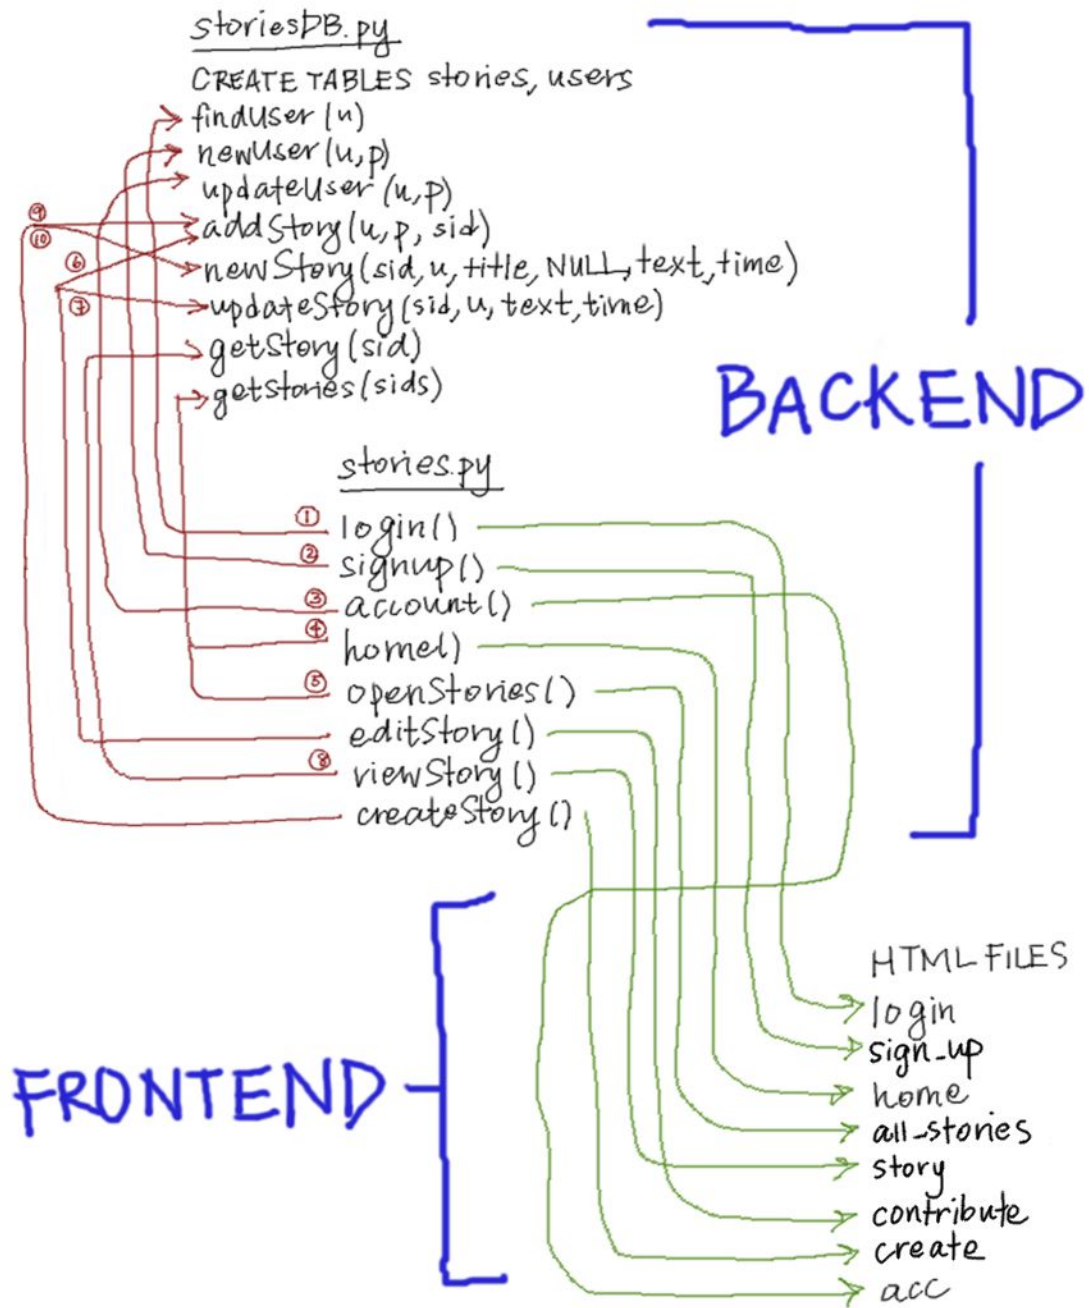 storiesDB.py
CREATE TABLES stories, users
findUser (u)
newUser (u,p)
updateUser (u,p)
⑨ addStory (u, p, sid)
⑩
⑥ newStory (sid, u, title, NULL, text, time)
⑦ updateStory (sid, u, text, time)
getStory (sid)
getStories (sids)
BACKEND
stories.py
① login()
② signup()
③ account()
④ home()
⑤ openStories()
editStory()
⑧ viewStory()
createStory()
FRONTEND
HTML FILES
login
sign_up
home
all_stories
story
contribute
create
acc